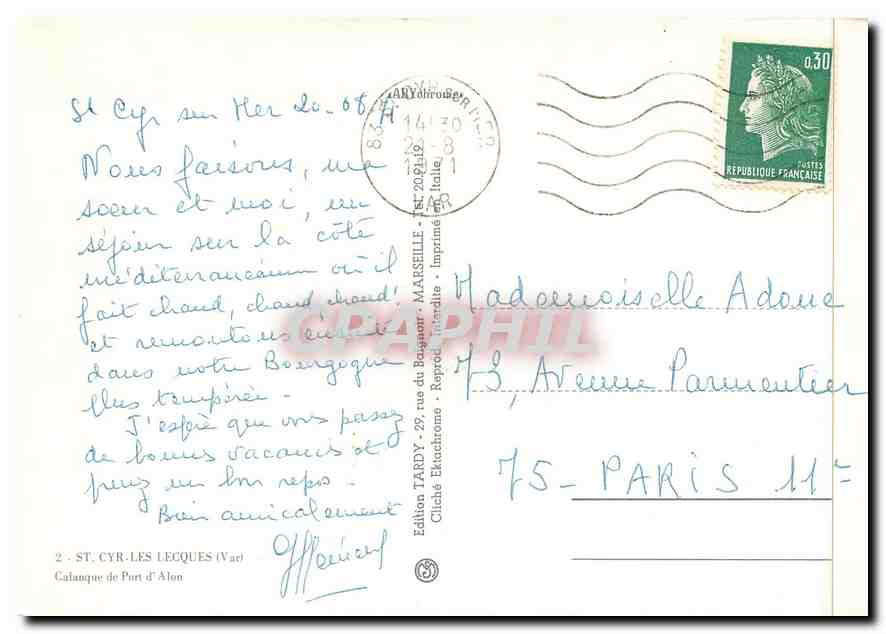 St Cyr sur Mer 20-08-71
Nous faisons, ma
soeur et moi, un
séjour sur la côte
méditerranéenne où il
fait chaud, chaud, chaud!
et remontons ensuite
dans notre Bourgogne
plus tempérée.
J'espère que vous passez
de bonnes vacances et
prenez un bon repos.
Bien amicalement
2 - ST. CYR-LES LECQUES (Var)
Calanque de Port d'Alon
ARYchrome
Edition TARDY - 29, rue du Baignoir - MARSEILLE - Tel. 20.91.19
Cliché Ektachrome - Reprod. Interdite - Imprimé en Italie
83 CYR SUR MER
14 30
2 -8
1
VAR
0,30
POSTES
REPUBLIQUE FRANÇAISE
Mademoiselle Adoue
73, Avenue Parmentier
75 - PARIS 11e
CPAPHIL